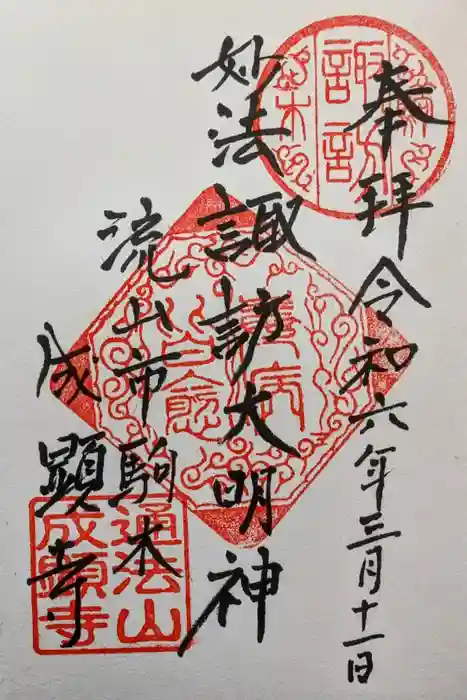 奉拝 令和六年三月十一日
妙法諏訪大明神
流山市駒木
成顕寺
諏訪
通法山
成顕寺